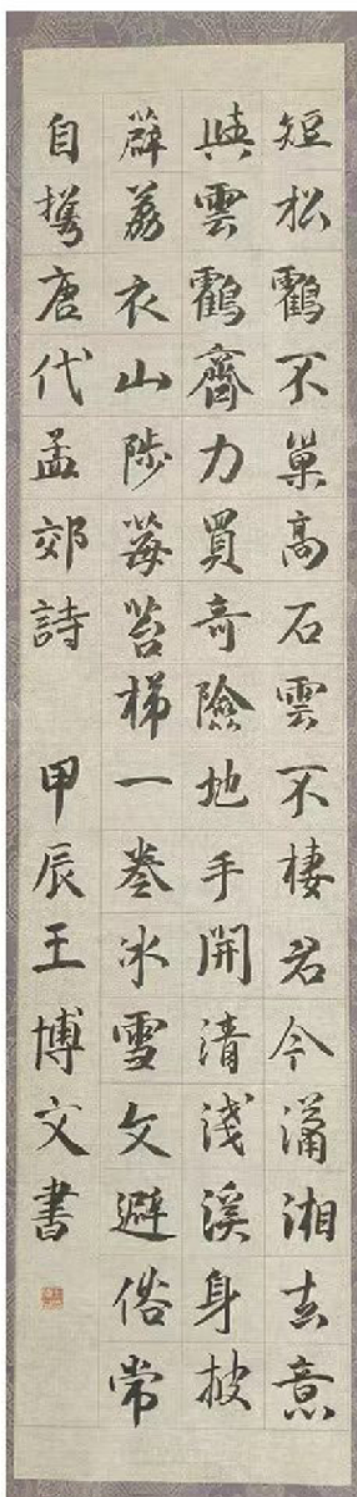 短松鸖不巢高石雲不棲君今瀟湘去意
與雲鸖齊力買奇險地手開清淺溪身披
薜荔衣山陟莓苔梯一卷冰雪文避俗常
自攜唐代孟郊詩 甲辰王博文書